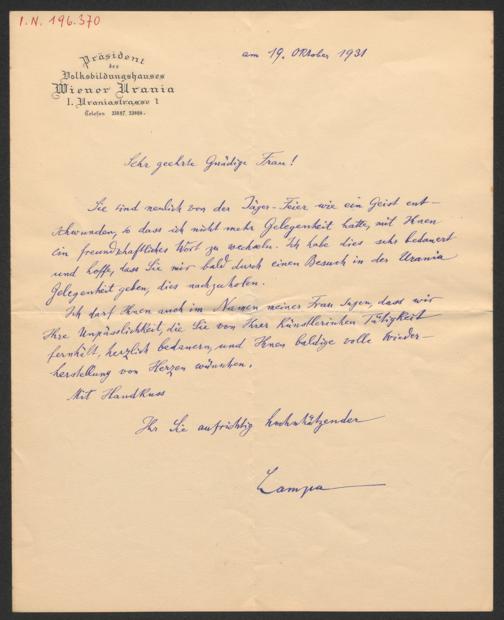 I.N. 196.370
am 19. Oktober 1931
Präsident
des
Volksbildungshauses
Wiener Urania
1. Uraniastrasse 1
Telefon
Sehr geehrte Gnädige Frau!
Sie sind neulich von der Jäger-Feier wie ein Geist ent-
schwunden, so dass ich nicht mehr Gelegenheit hatte, mit Ihnen
ein freundschaftliches Wort zu wechseln. Ich habe dies sehr bedauert
und hoffe, dass Sie mir bald durch einen Besuch in der Urania
Gelegenheit geben, dies nachzuholen.
Ich darf Ihnen auch im Namen meiner Frau sagen, dass wir
Ihre Unpässlichkeit, die Sie von Ihrer künstlerischen Tätigkeit
fernhält, herzlich bedauern, und Ihnen baldige volle Wieder-
herstellung von Herzen wünschen.
Mit Handkuss
Ihr Sie aufrichtig hochschätzender
Lampa